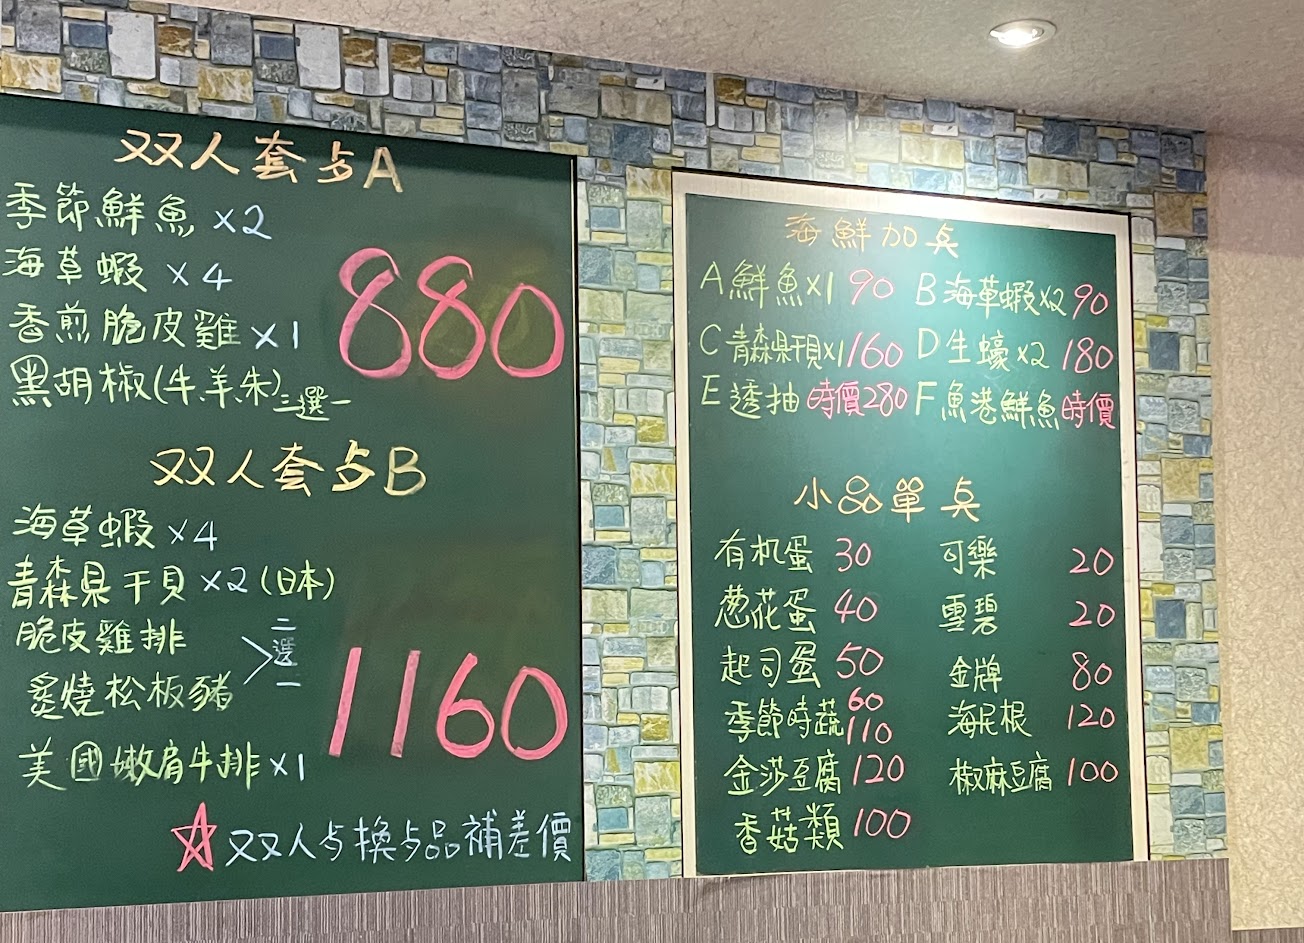 双人套歺A
季節鮮魚 x2
海草蝦 x4
香煎脆皮雞 x1
黑胡椒(牛.羊.朱)三選一
880
双人套歺B
海草蝦 x4
青森県干貝 x2 (日本)
脆皮雞排
炙燒松板豬
二選一
美國嫩肩牛排 x1
1160
☆双人歺換歺品補差價
海鮮加点
A 鮮魚x1 90 B 海草蝦x2 90
C 青森県干貝x1 160 D 生蠔x2 180
E 透抽 時價280 F 魚港鮮魚 時價
小品單点
有机蛋 30 可樂 20
葱花蛋 40 雪碧 20
起司蛋 50 金牌 80
季節時蔬 60 110 海尼根 120
金莎豆腐 120 椒麻豆腐 100
香菇類 100